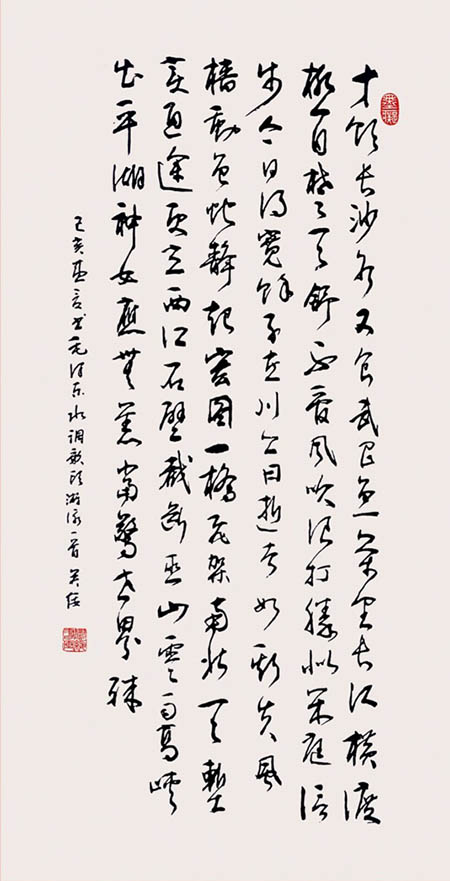 才饮长沙水又食武昌鱼万里长江横渡
极目楚天舒不管风吹浪打胜似闲庭信
步今日得宽馀子在川上曰逝者如斯夫风
樯动龟蛇静起宏图一橋飞架南北天堑
变通途更立西江石壁截断巫山云雨高峡
出平湖神女应無恙当惊世界殊
己亥孟夏书毛泽东水调歌头游泳一首